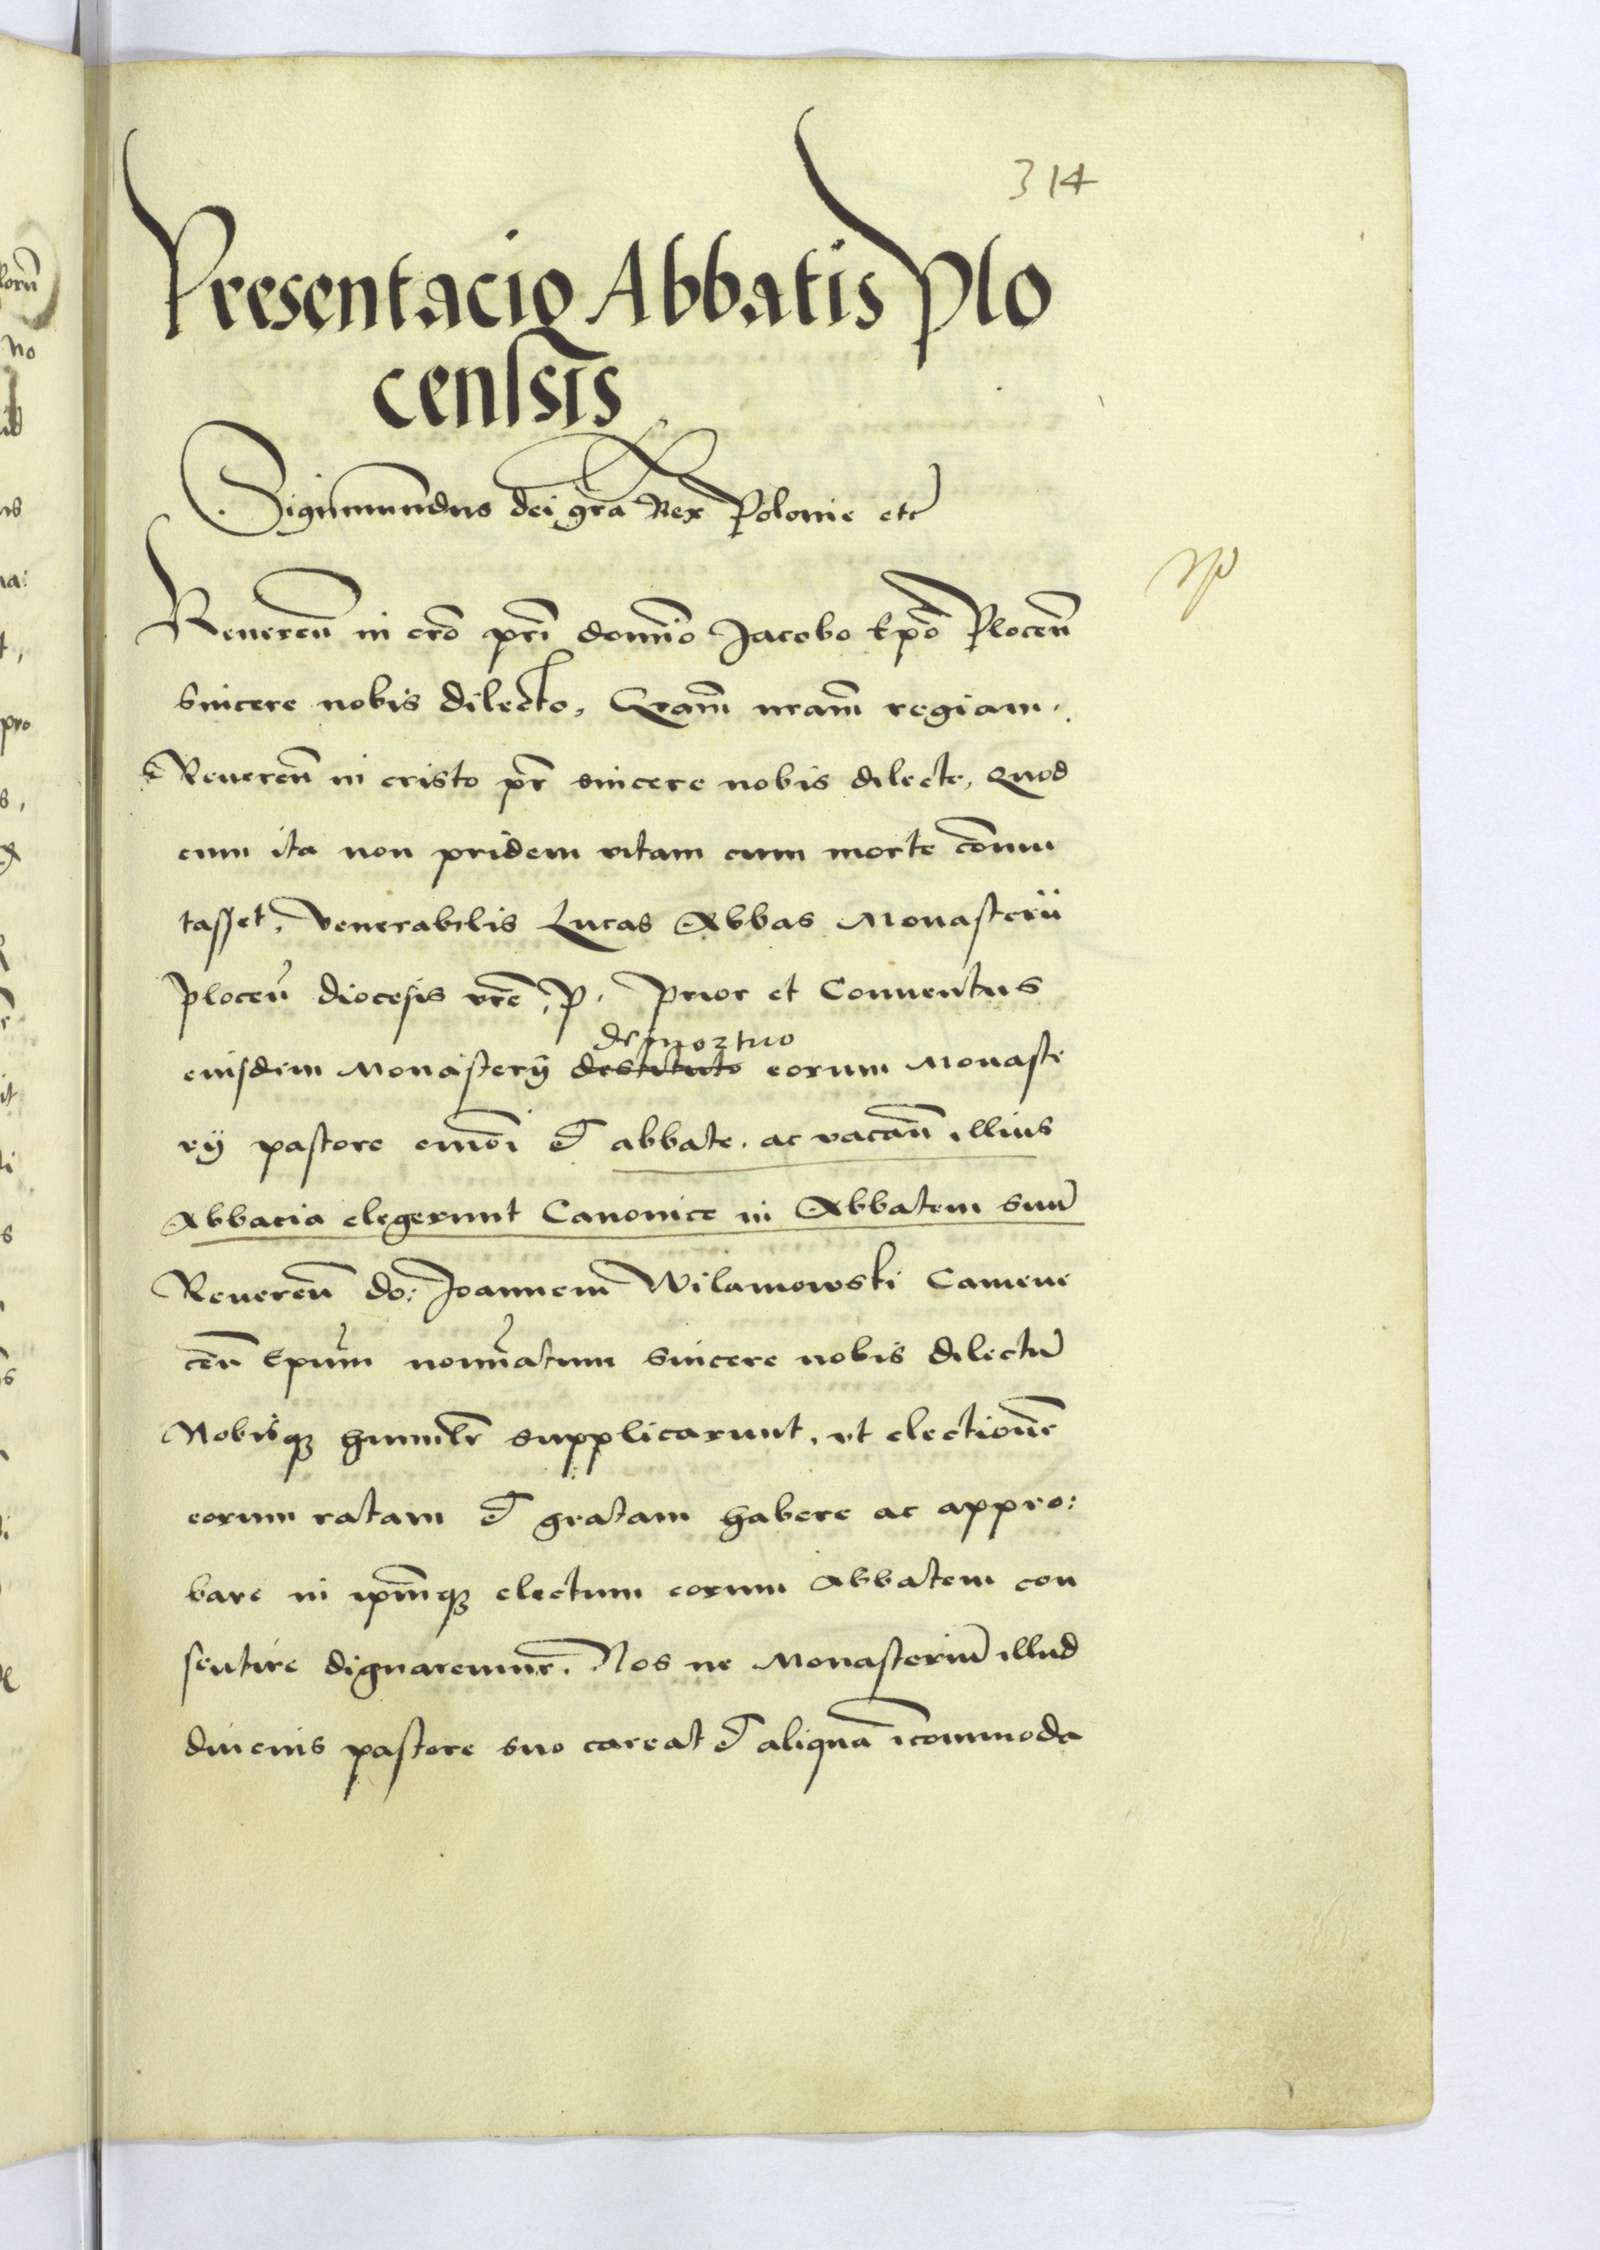 314
Presentacio Abbatis Plo
censis
Sigismundus dei gra Rex Polonie etc
Reueren in cro pri domino Jacobo Epo Plocen
sincere nobis dilecto, Gram nram regiam.
Reueren in cristo pr sincere nobis dilecte, Quod
cum ita non pridem vitam cum morte commu
tasset, Venerabilis Lucas Abbas Monasterii
plocen diocesis vre, P. Prior et Conuentus
demortuo
eiusdem Monasterij destituto eorum Monaste
rij pastore et abbate. ac vacan illius
Abbacia elegerunt Canonice in Abbatem suu
Reueren do: Joannem Wilamowski Camene
cen Epum nominatum sincere nobis dilectu
Nobisque humilr supplicarunt, vt electione
eorum ratam et gratam habere ac appro:
bare in ipmque electum eorum Abbatem con
sentire dignaremur. Nos ne Monasteriu illud
diucius pastore suo careat et aliqua incommoda